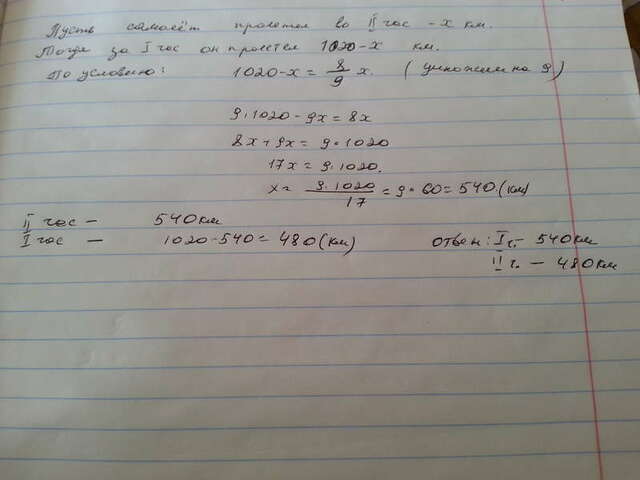 Пусть самолёт пролетел во II час - x км.
Тогда за I час он пролетел 1020-x км.
По условию: 1020-x = 8/9 x. (умножим на 9)
9·1020 - 9x = 8x
8x + 9x = 9·1020
17x = 9·1020.
x = 9·1020/17 = 9·60 = 540 (км)
II час - 540 км
I час - 1020-540 = 480 (км) ответ: I ч. - 540 км
II ч. - 480 км